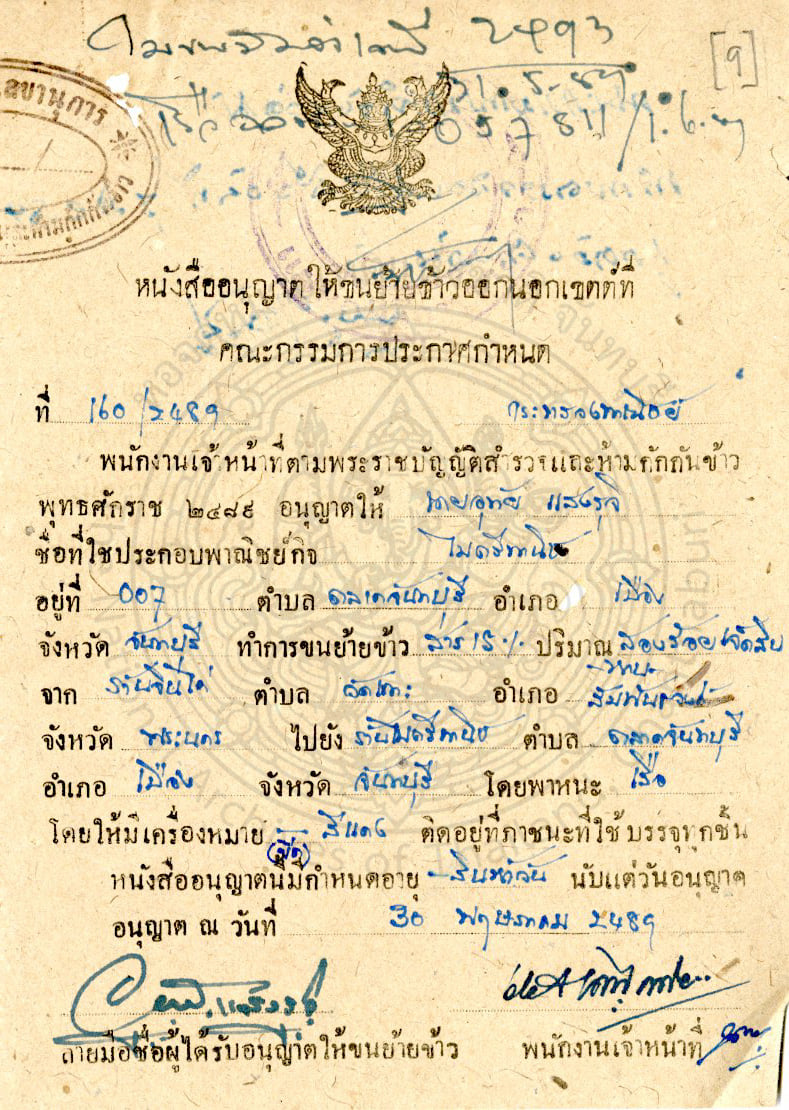 2493
[9]
31.5.89
057811/1.6.
ลขานุการ
หนังสืออนุญาตให้ขนย้ายข้าวออกนอกเขตต์ที่
คณะกรรมการประกาศกำหนด
ที่ 160/2489 กระทรวงพาณิชย์
พนักงานเจ้าหน้าที่ตามพระราชบัญญัติสำรวจและห้ามกักกันข้าว
พุทธศักราช ๒๔๘๙ อนุญาตให้ นายอุทัย แสงรุจิ
ชื่อที่ใช้ประกอบพาณิชย์กิจ ไมตรีพานิช
อยู่ที่ 007 ตำบล ตลาดจันทบุรี อำเภอ เมือง
จังหวัด จันทบุรี ทำการขนย้ายข้าว สาร 15% ปริมาณ สองร้อยเจ็ดสิบ
จาก ตำบล จักรวรรดิ อำเภอ สัมพันธวงศ์
จังหวัด พระนคร ไปยัง ร้านไมตรีพานิช ตำบล ตลาดจันทบุรี
อำเภอ เมือง จังหวัด จันทบุรี โดยพาหนะ เรือ
โดยให้มีเครื่องหมาย สีแดง ติดอยู่ที่ภาชนะที่ใช้บรรจุทุกชิ้น
หนังสืออนุญาตนี้มีกำหนดอายุ สิบห้าวัน นับแต่วันอนุญาต
อนุญาต ณ วันที่ 30 พฤษภาคม 2489
ลายมือชื่อผู้ได้รับอนุญาตให้ขนย้ายข้าว พนักงานเจ้าหน้าที่